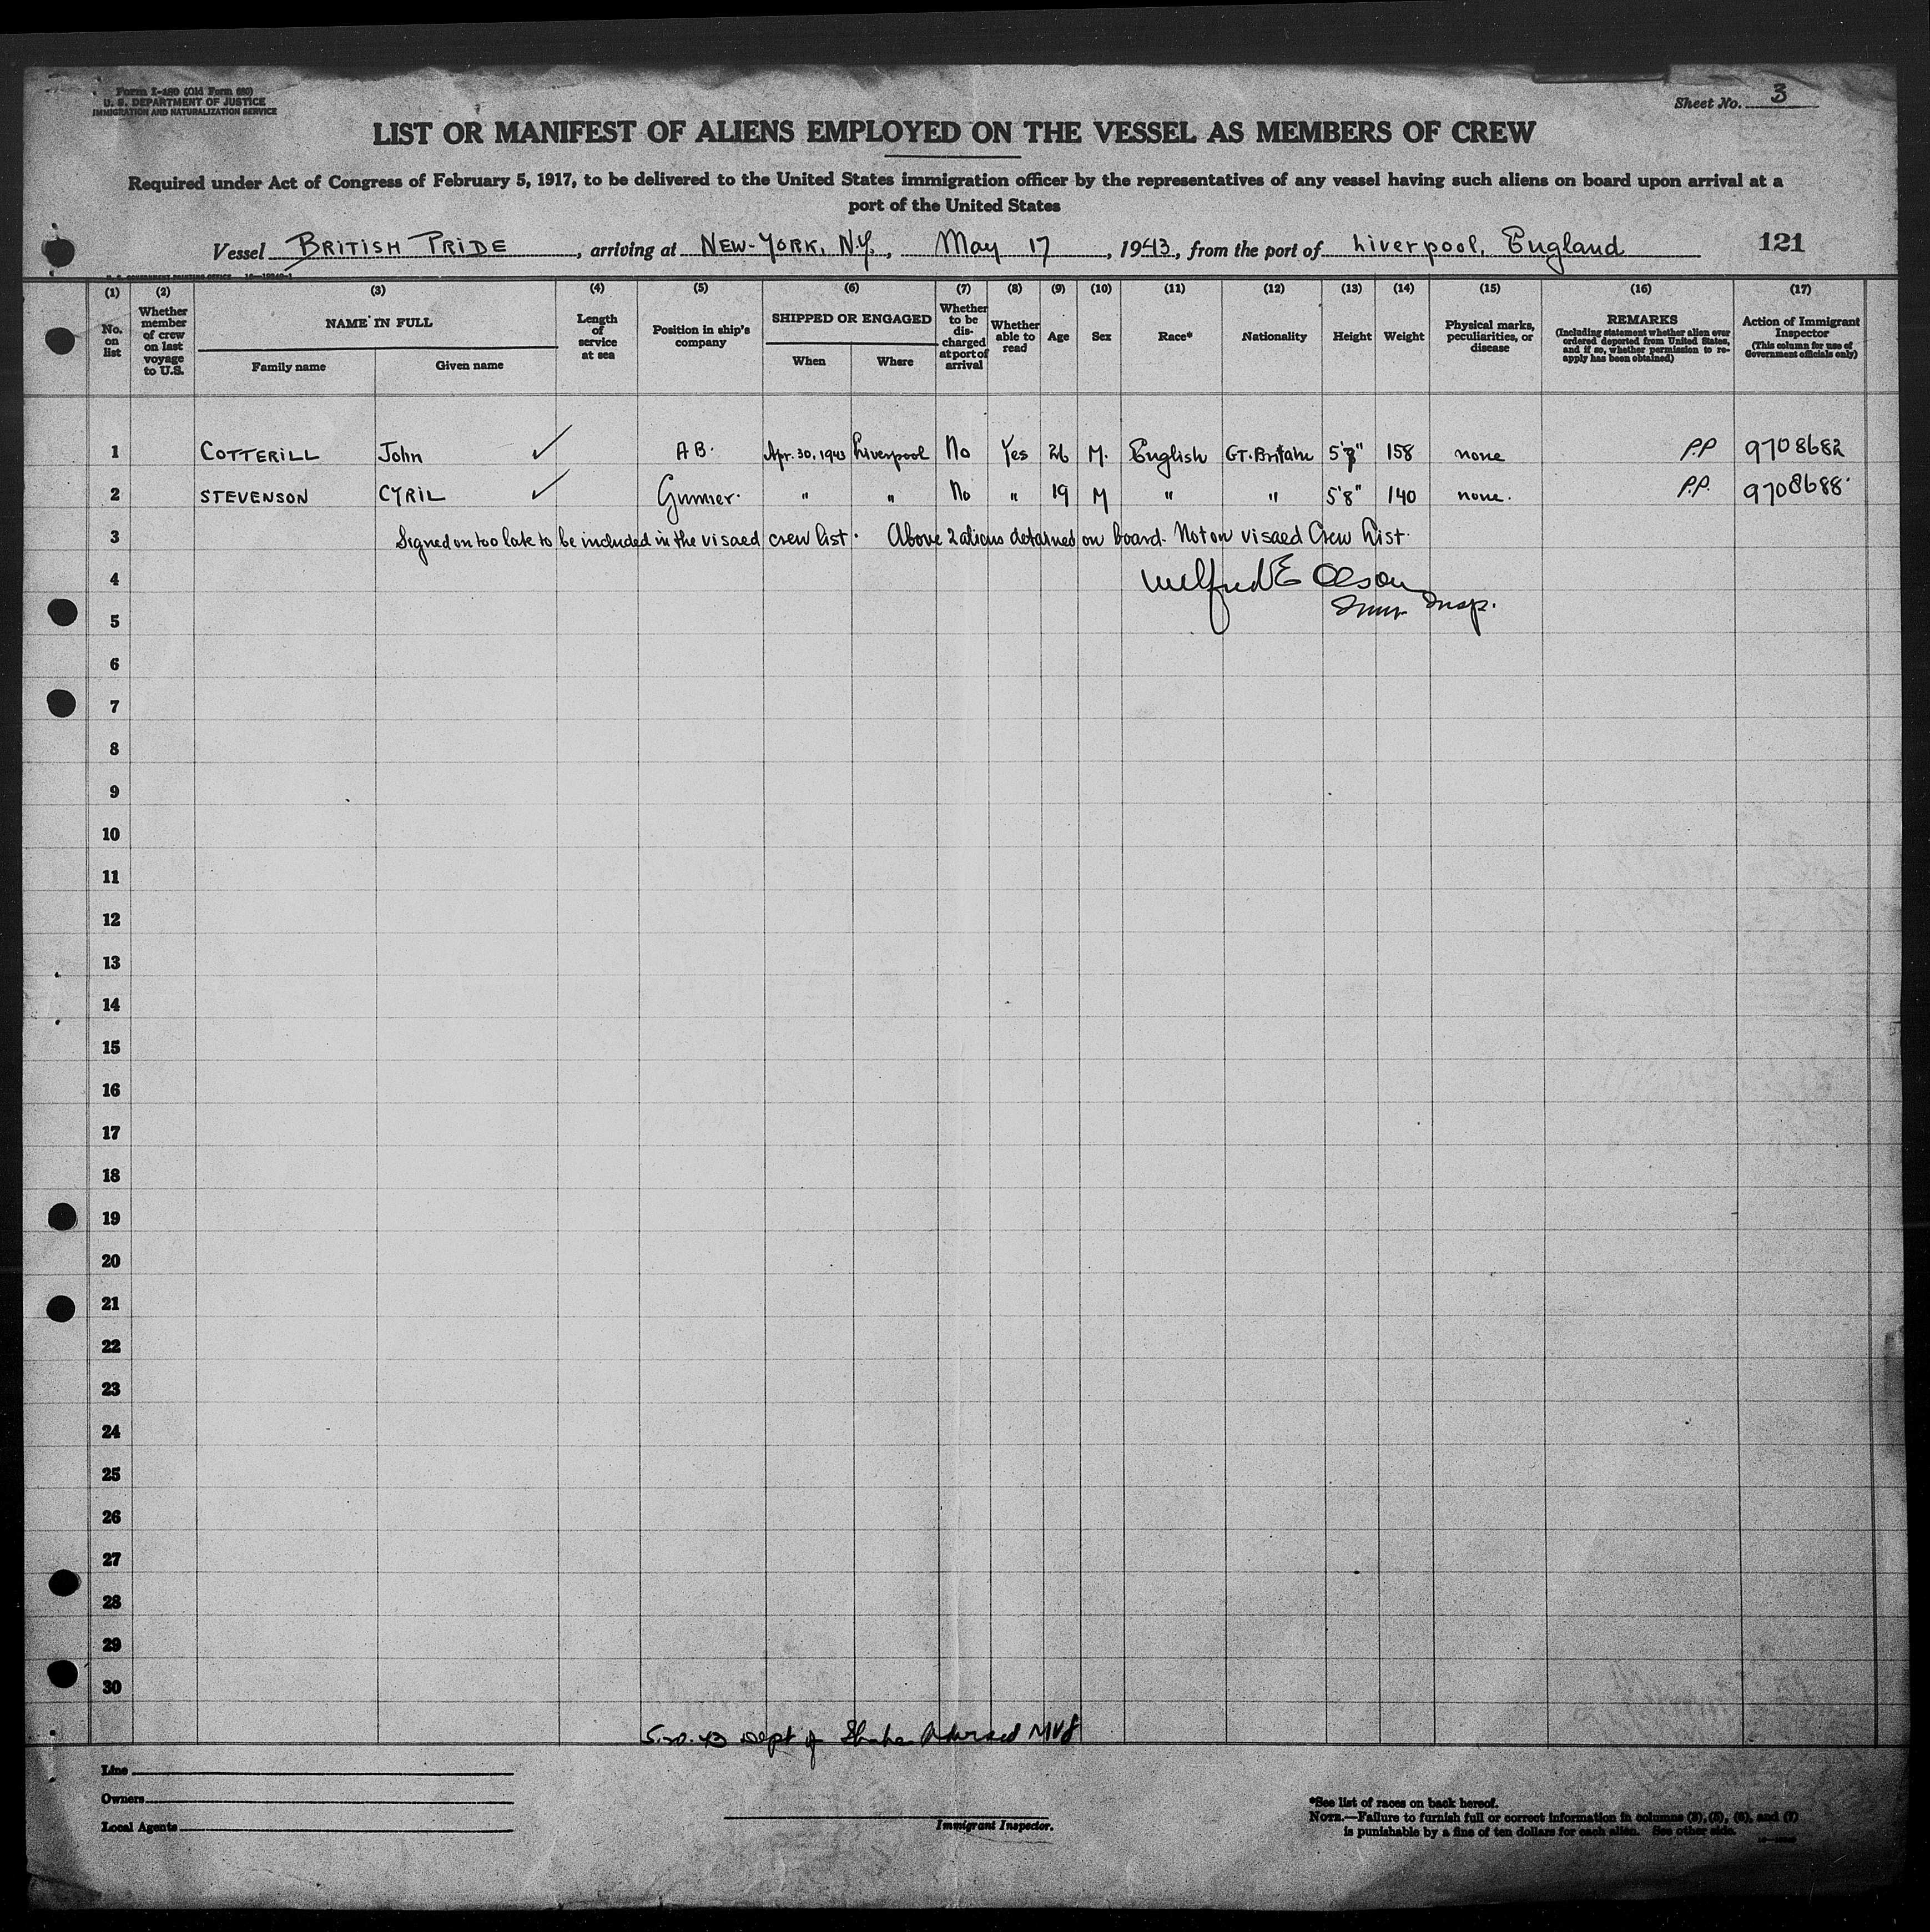 Form I-480 (Old Form 680)
U. S. DEPARTMENT OF JUSTICE
IMMIGRATION AND NATURALIZATION SERVICE
Sheet No. 3
LIST OR MANIFEST OF ALIENS EMPLOYED ON THE VESSEL AS MEMBERS OF CREW
Required under Act of Congress of February 5, 1917, to be delivered to the United States immigration officer by the representatives of any vessel having such aliens on board upon arrival at a
port of the United States
Vessel BRITISH PRIDE, arriving at NEW-YORK, N.Y., May 17, 1943, from the port of Liverpool, England 121
(1) (2) (3) (4) (5) (6) (7) (8) (9) (10) (11) (12) (13) (14) (15) (16) (17)
No. on list
Whether member of crew on last voyage to U.S.
NAME IN FULL
Family name Given name
Length of service at sea
Position in ship's company
SHIPPED OR ENGAGED
When Where
Whether to be discharged at port of arrival
Whether able to read
Age
Sex
Race*
Nationality
Height
Weight
Physical marks, peculiarities, or disease
REMARKS
(Including statement whether alien ever ordered deported from United States, and if so, whether permission to re-apply has been obtained)
Action of Immigrant Inspector
(This column for use of Government officials only)
1 COTTERILL John ✓ AB. Apr. 30, 1943 Liverpool No Yes 26 M. English GT. Britain 158 none P.P 9708682
2 STEVENSON CYRIL ✓ Gunner. " " No " 19 M " " 5'8" 140 none. P.P. 9708688
3 Signed on too late to be included in the visaed crew list. Above 2 aliens detained on board. Not on visaed Crew List.
4 Wilfred E Olson
5 Imm Insp.
6
7
8
9
10
11
12
13
14
15
16
17
18
19
20
21
22
23
24
25
26
27
28
29
30
5.20.43 Dept of State Advised
Line
Owners
Local Agents
Immigrant Inspector.
*See list of races on back hereof.
NOTE.—Failure to furnish full or correct information in columns (3), (5), (6), and (7)
is punishable by a fine of ten dollars for each alien. See other side.